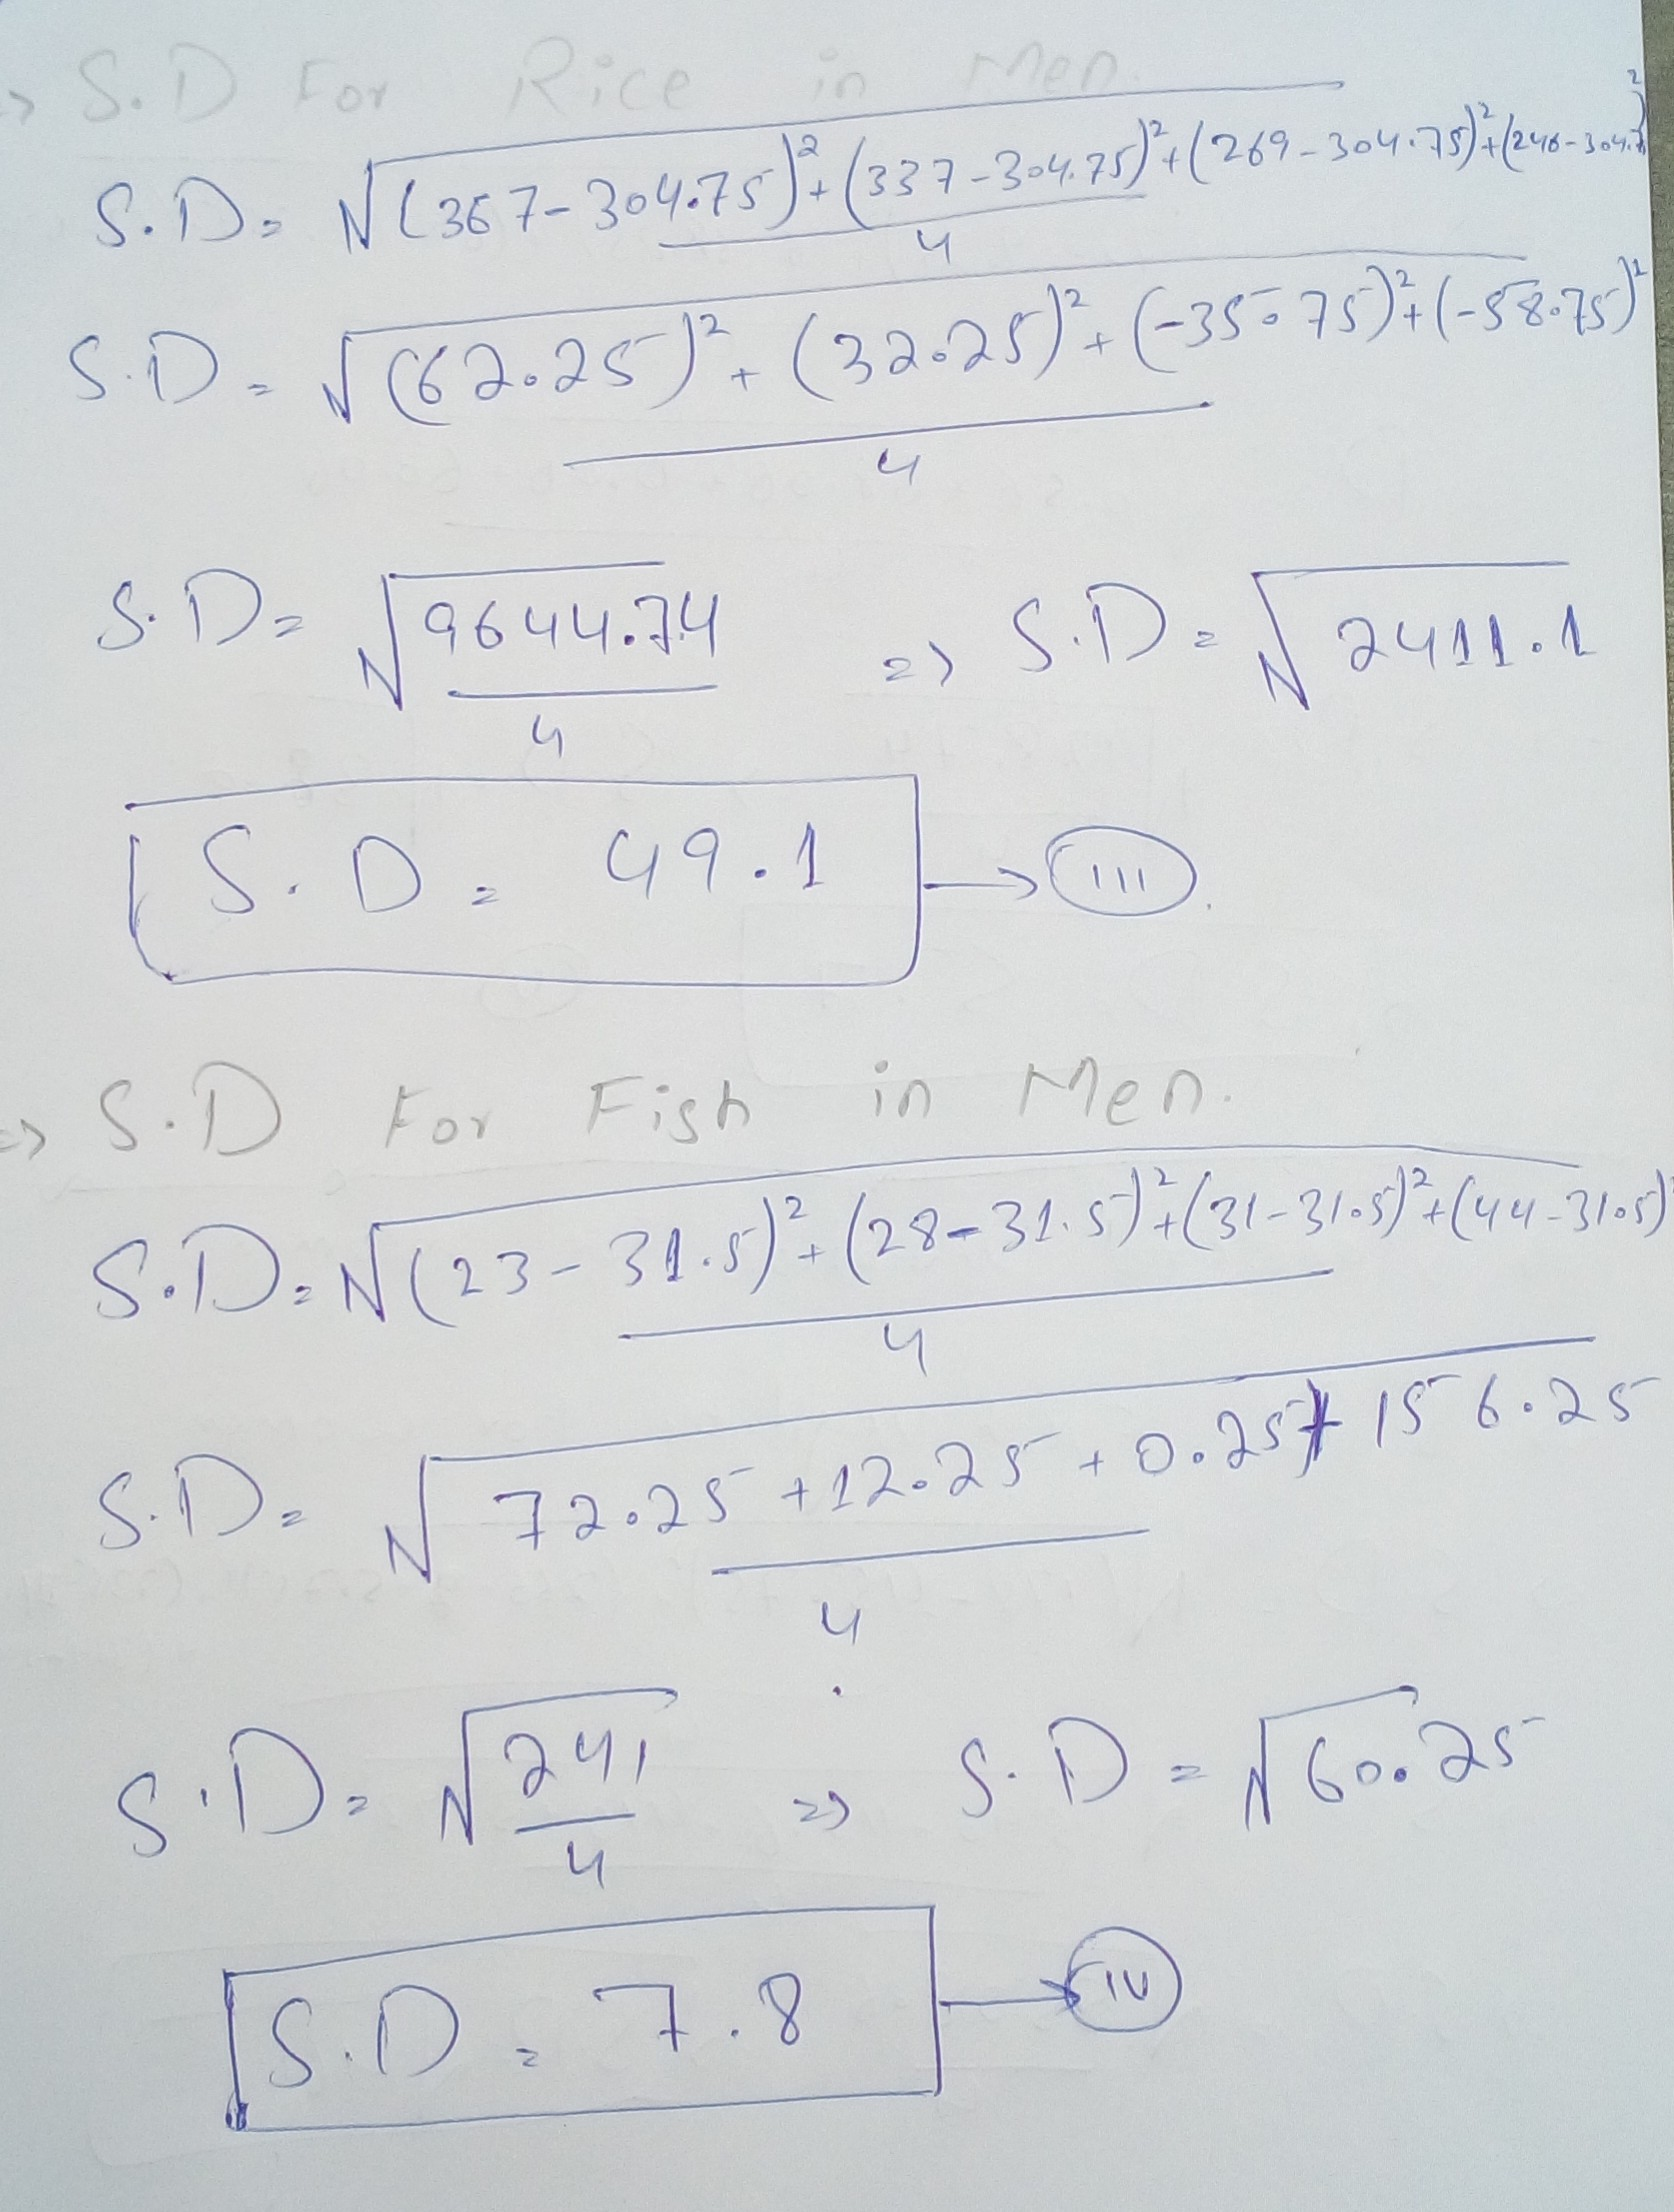 => S.D For Rice in Men.
S.D = √(367-304.75)²+(337-304.75)²+(269-304.75)²+(246-304.7)²
4
S.D = √(62.25)²+(32.25)²+(-35.75)²+(-58.75)²
4
S.D = √9644.74 => S.D = √2411.1
4
S.D = 49.1 → III
=> S.D For Fish in Men.
S.D = √(23-31.5)²+(28-31.5)²+(31-31.5)²+(44-31.5)²
4
S.D = √72.25+12.25+0.25+156.25
4
S.D = √241 => S.D = √60.25
4
S.D = 7.8 → IV